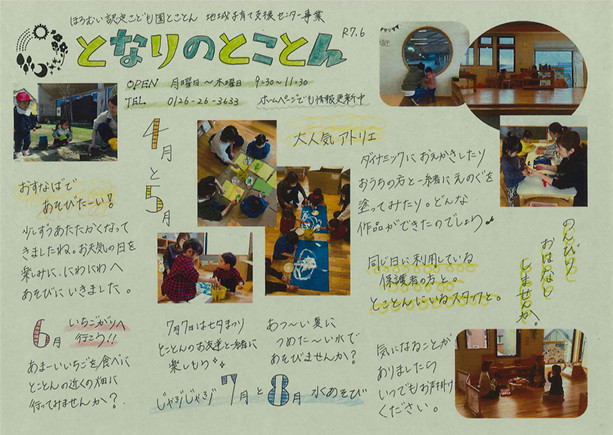 ほろむい認定こども園とことん 地域子育て支援センター事業
となりのとことん
R7.6
OPEN 月曜日〜木曜日 9:30〜11:30
TEL 0126-26-3633 ホームページでも情報更新中
4月と5月
おすなばで
あそびたーい!
少しずつあたたかくなって
きましたね。お天気の日を
楽しみに、にわにわへ
あそびにいきました。
大人気アトリエ
ダイナミックにおえかきしたり
おうちの方と一緒にえのぐを
塗ってみたり。どんな
作品ができたのでしょう♪
同じ日に利用している
保護者の方と。
とことんにいるスタッフと。
のんびりと
おはなし
しませんか。
6月 いちごがりへ
行こう!!
あまーいいちごを食べに
とことんの近くの畑に
行ってみませんか?
7月7日は七夕まつり
とことんのお友達と一緒に
楽しもう
あつ〜い夏に
つめた〜い水で
あそびませんか?
じゃぶじゃぶ 7月と8月 水あそび
気になることが
ありましたら
いつでもお声掛け
ください。